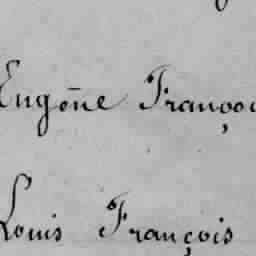 Eugène François
Louis François